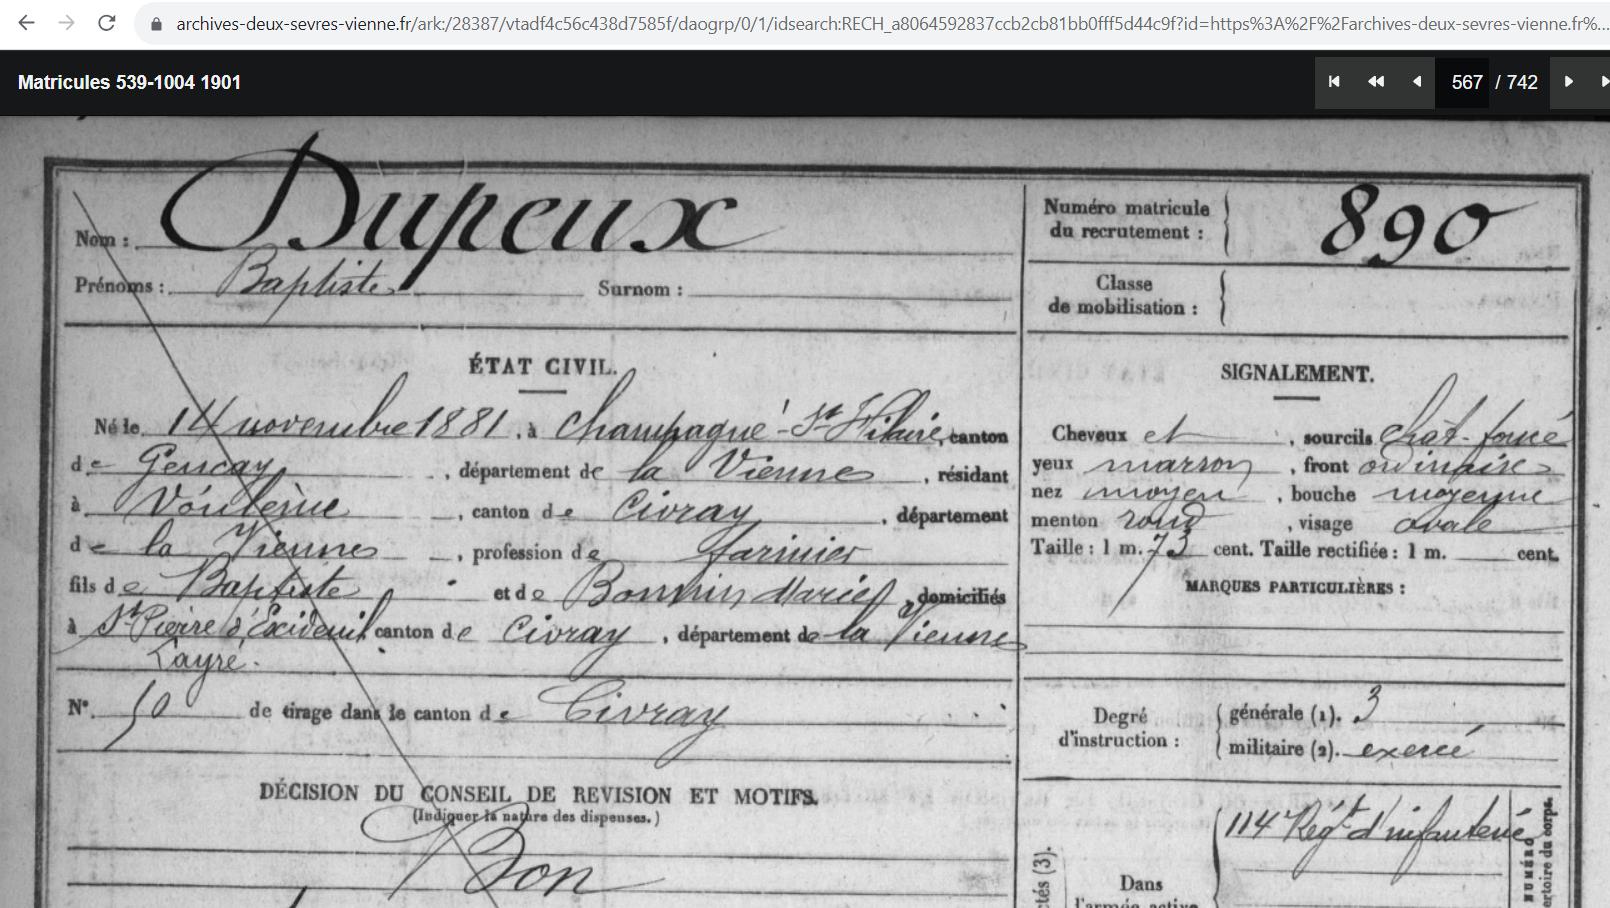 archives-deux-sevres-vienne.fr/ark:/28387/vtadf4c56c438d7585f/daogrp/0/1/idsearch:RECH_a8064592837ccb2cb81bb0fff5d44c9f?id=https%3A%2F%2Farchives-deux-sevres-vienne.fr%...
Matricules 539-1004 1901
567 / 742
Nom : Dupeux
Prénoms : Baptiste Surnom :
Numéro matricule du recrutement : 890
Classe de mobilisation :
ÉTAT CIVIL.
Né le 14 novembre 1881, à Champagné-St Hilaire, canton
de Gençay, département de la Vienne, résidant
à Voulême, canton de Civray, département
de la Vienne, profession de farinier
fils de Baptiste et de Bonnin Marie, domiciliés
à St Pierre d'Exideuil canton de Civray, département de la Vienne
Layré.
N° 50 de tirage dans le canton de Civray
DÉCISION DU CONSEIL DE REVISION ET MOTIFS.
(Indiquer la nature des dispenses.)
Bon
SIGNALEMENT.
Cheveux et, sourcils chât-foncé
yeux marron, front ordinaire
nez moyen, bouche moyenne
menton rond, visage ovale
Taille : 1 m. 73 cent. Taille rectifiée : 1 m. cent.
MARQUES PARTICULIÈRES :
Degré d'instruction :
générale (1). 3
militaire (2). exercé
114e Régt d'infanterie
Dans
l'armée active
NUMÉRO